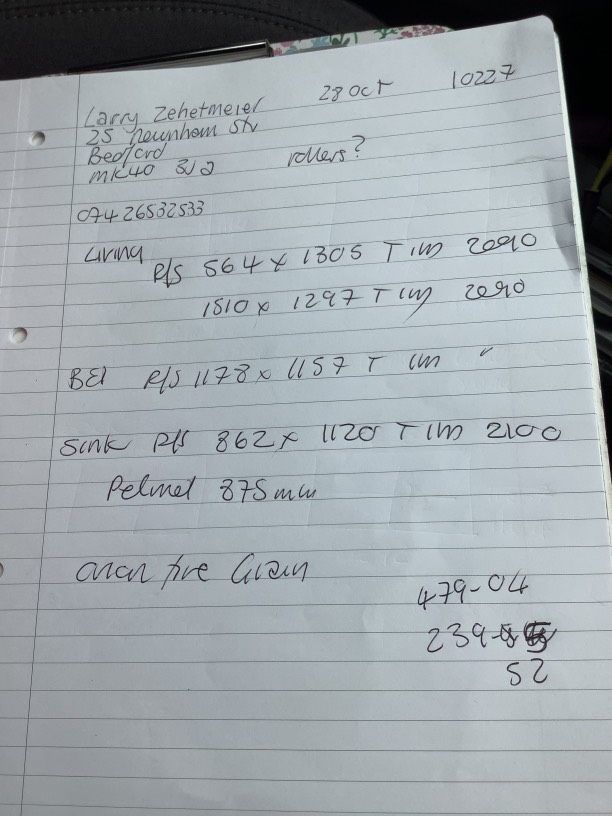 Larry Zehetmeier 28 Oct 10227
25 Newnham Str
Bedford rollers?
MK40
07426532533
Living
R/S 564 x 1305 T 1m 2090
1510 x 1297 T 1m 2090
BED R/S 1178 x 1157 T 1m "
Sink R/S 862 x 1120 T 1m 2100
Pelmet 875mm
fire Grain
479-04
239-
52